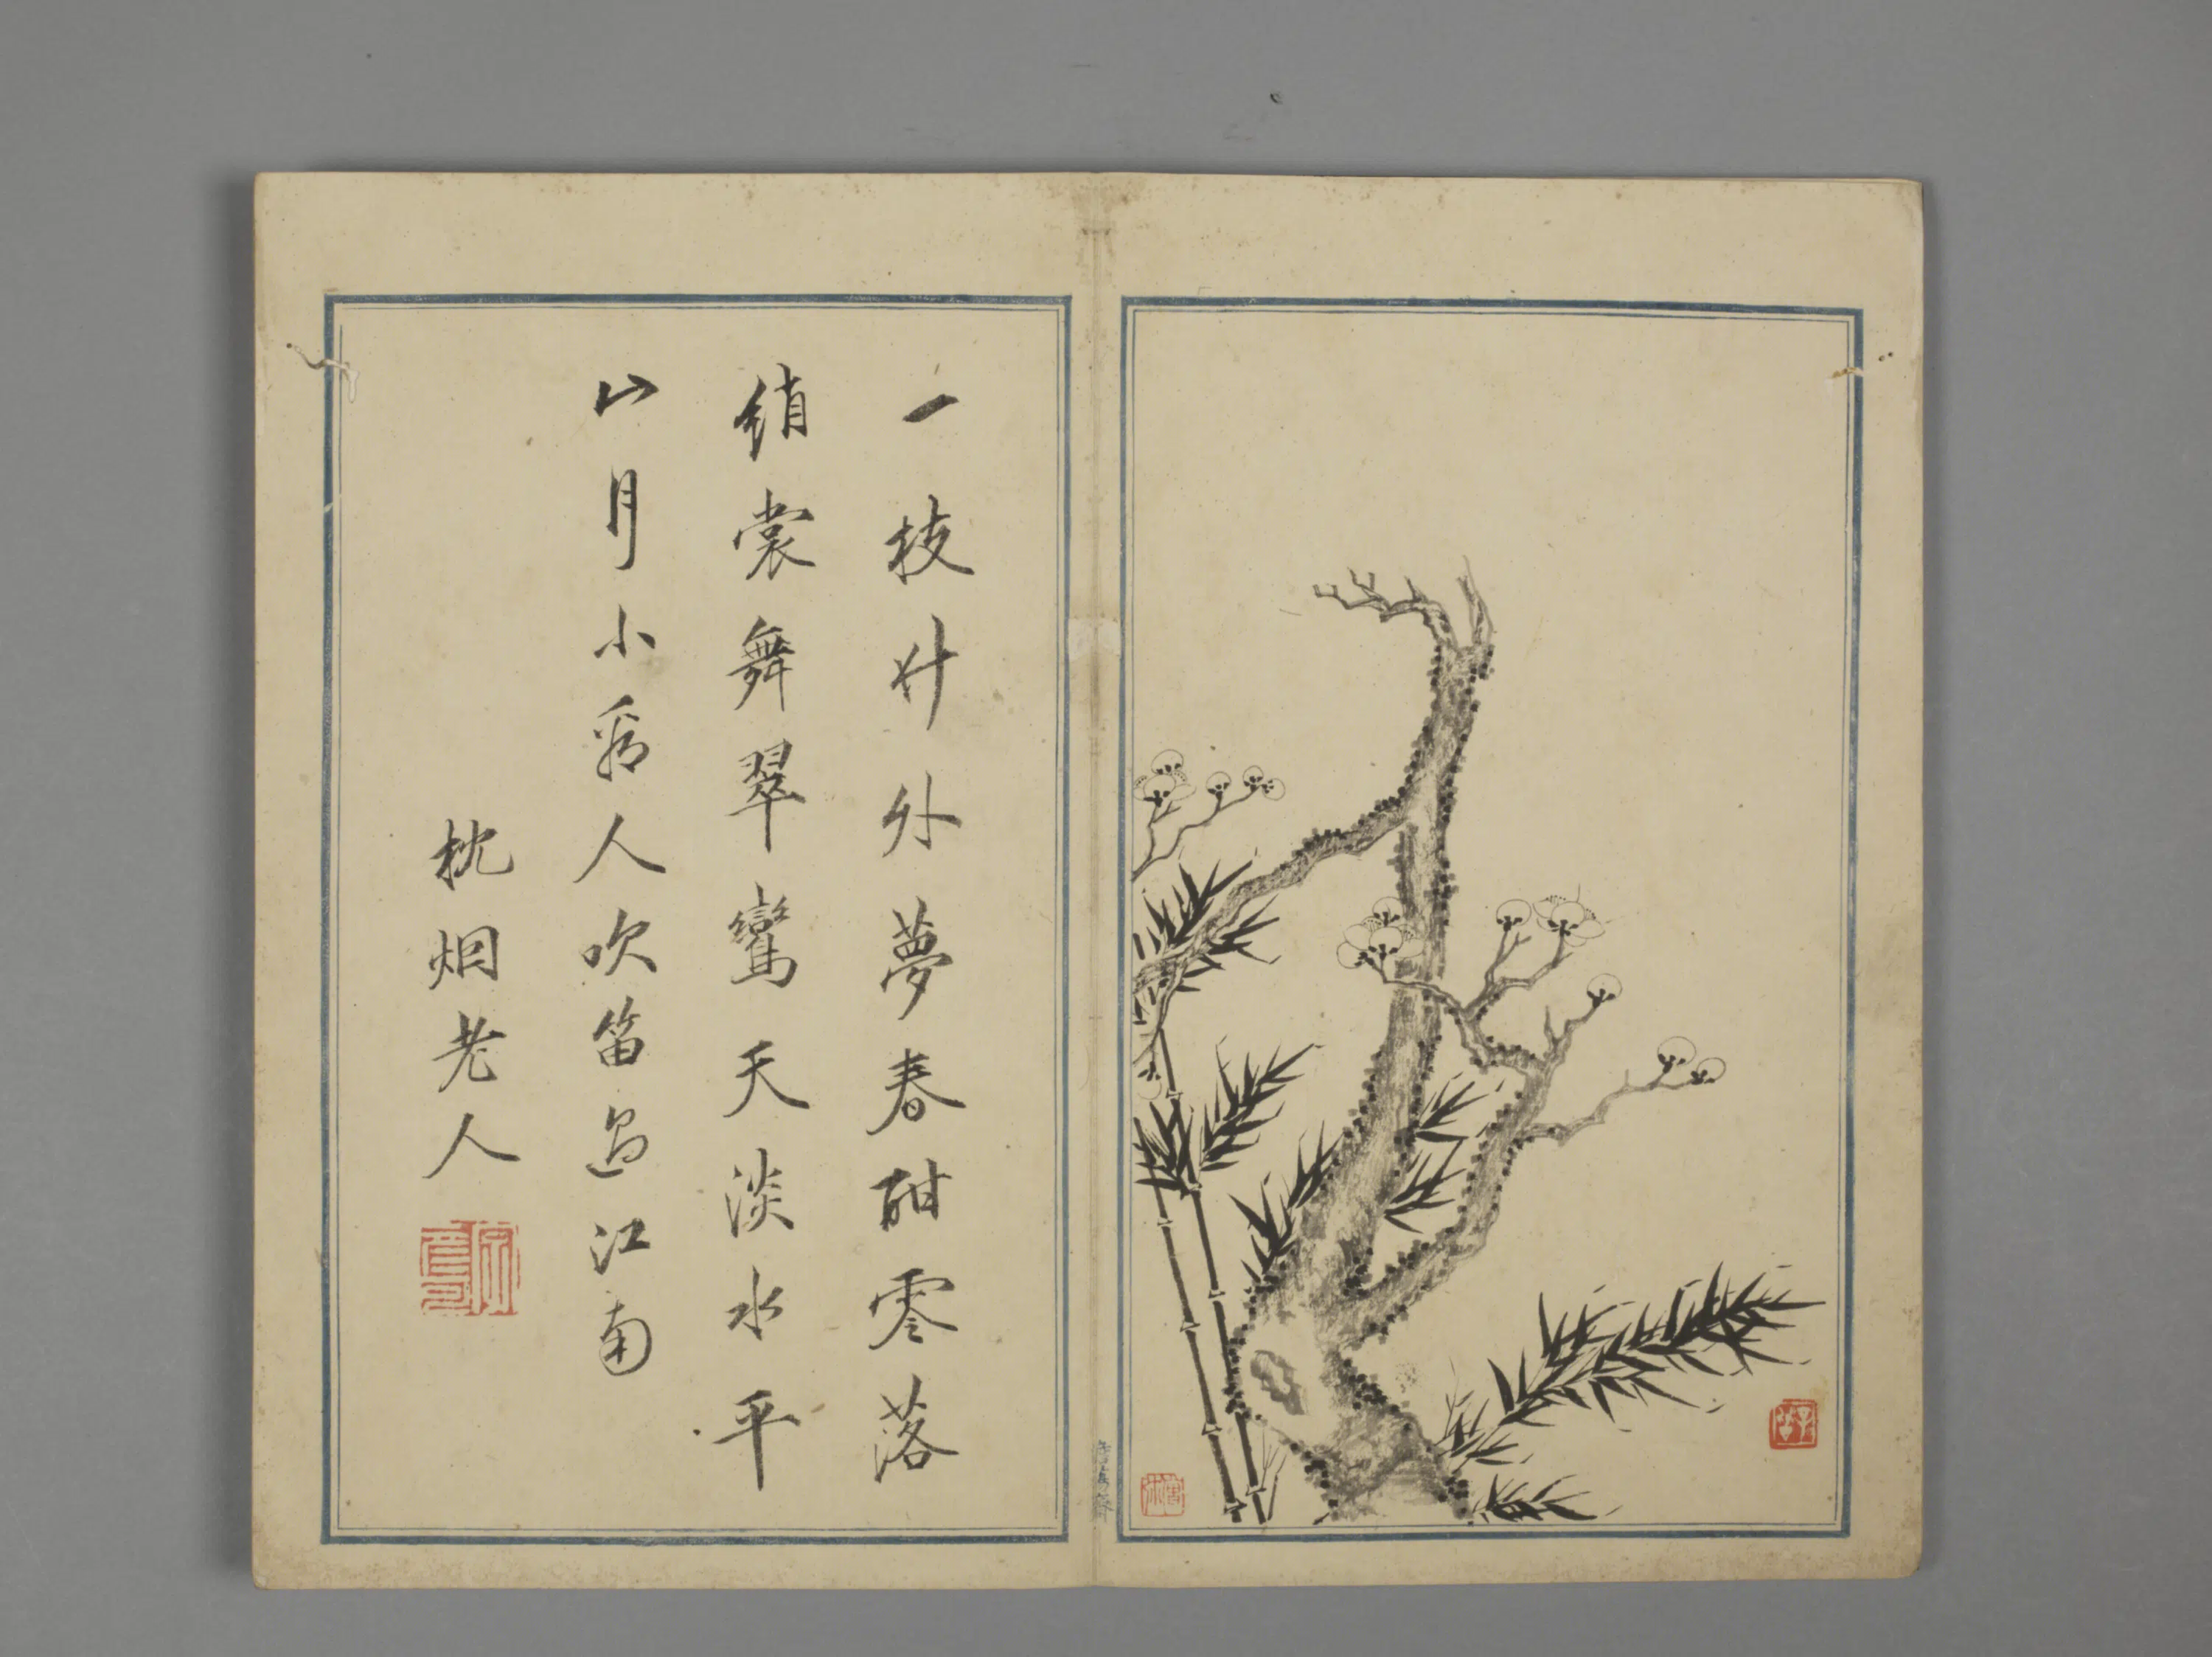 一枝竹外夢春酣零落
綃裳舞翠鸞天淡水平
山月小看人吹笛過江南
枕烟老人